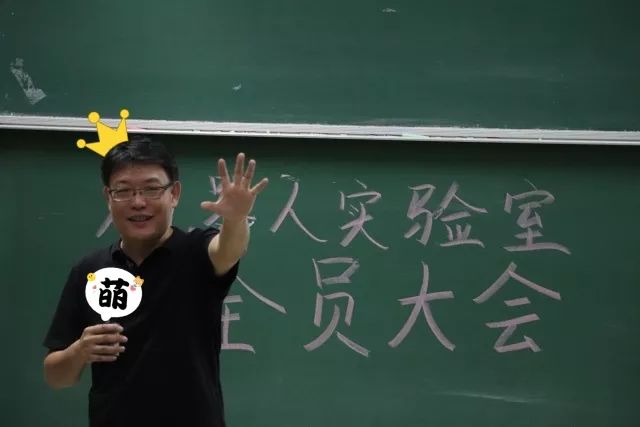 人实验室
全员大会
萌